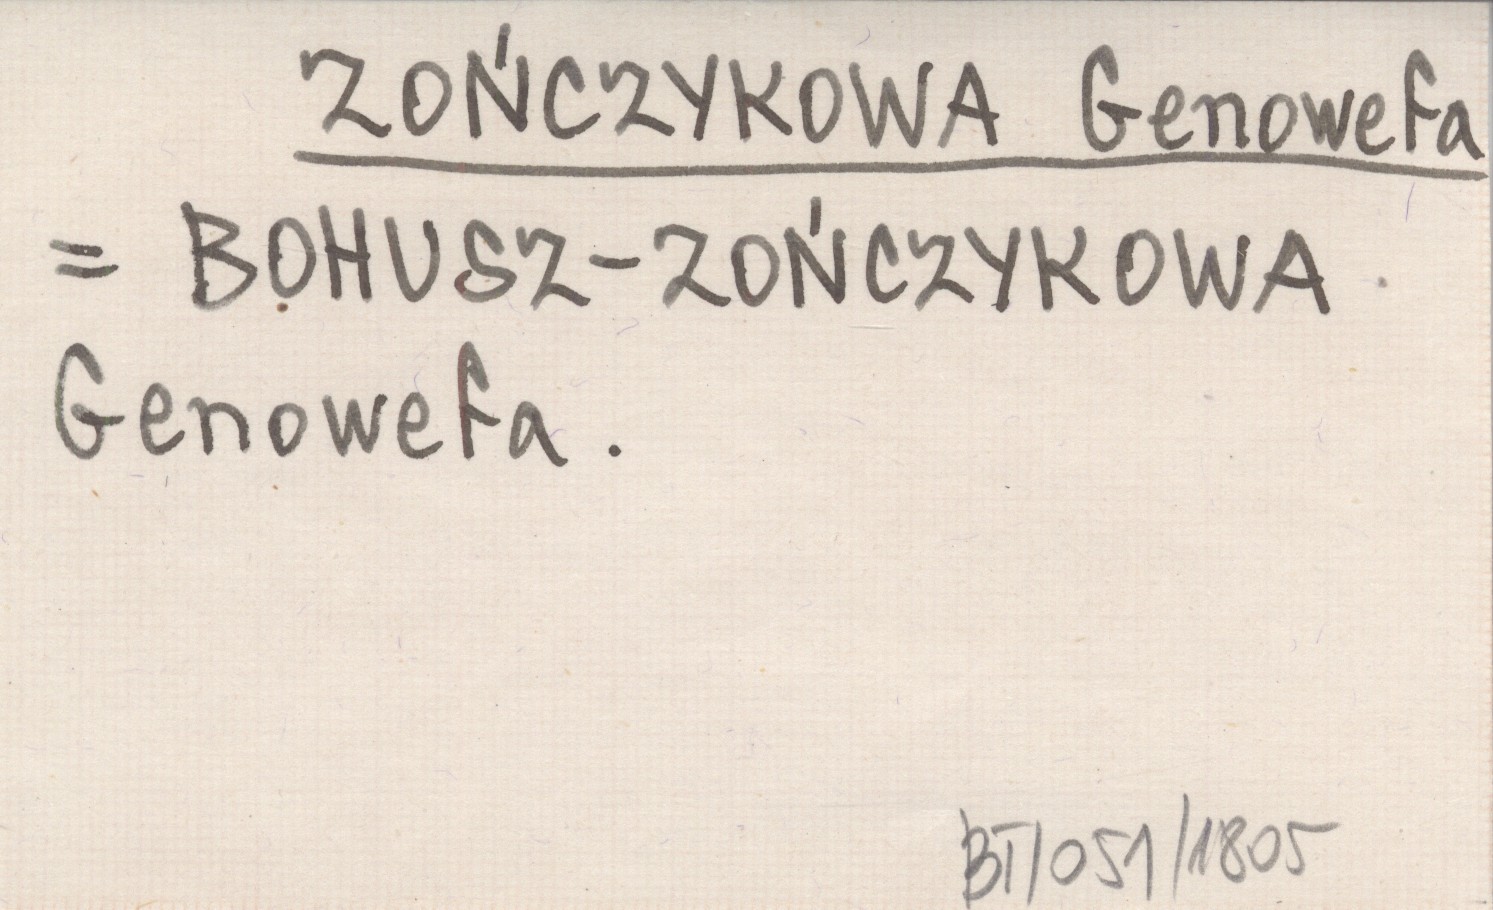 ZOŃCZYKOWA Genowefa
= BOHUSZ-ZOŃCZYKOWA
Genowefa.
BT/051/1805